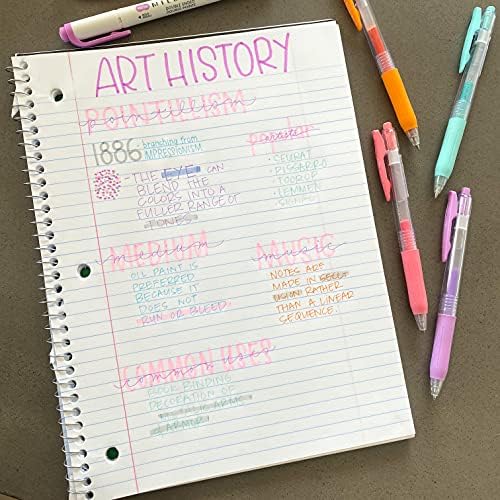 ART HISTORY
POINTILLISM
pointillism
1886 branching from
IMPRESSIONISM
THE EYE CAN
BLEND THE
COLORS INTO A
FULLER RANGE OF
TONES
artists
· SEURAT
· PISSARRO
· TOOROP
· LEMMEN
· SIGNAC
MEDIUM
medium
OIL PAINT IS
PREFERRED
BECAUSE IT
DOES NOT
"RUN OR BLEED"
MUSIC
music
NOTES ARE
MADE IN SECL-
USION RATHER
THAN A LINEAR
SEQUENCE.
COMMON USES
common uses
BOOK BINDING
DECORATION OF
METALLIC ARMS
& ARMOR